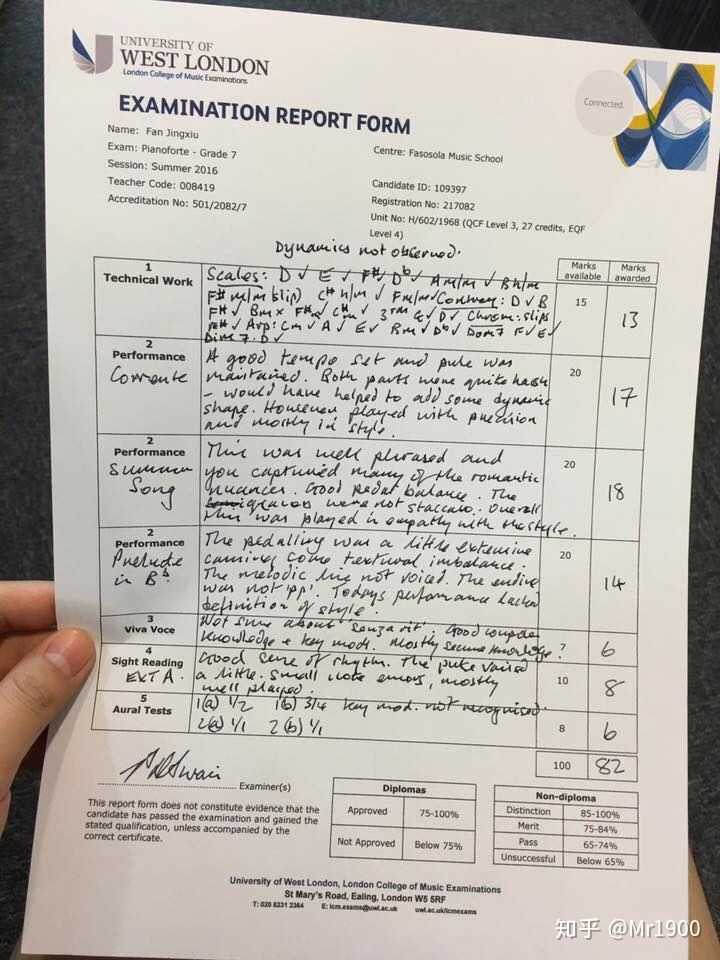 UNIVERSITY OF
WEST LONDON
London College of Music Examinations
Connected.
EXAMINATION REPORT FORM
Name: Fan Jingxiu
Exam: Pianoforte - Grade 7
Session: Summer 2016
Teacher Code: 008419
Accreditation No: 501/2082/7
Centre: Fasosola Music School
Candidate ID: 109397
Registration No: 217082
Unit No: H/602/1968 (QCF Level 3, 27 credits, EQF
Level 4)
Dynamics not observed.
Marks available
Marks awarded
1
Technical Work
Scales: D ✓ E ✓ F# ✓ Db ✓ Am/m ✓ Bh/m
F# m/m (slip) C# h/m ✓ Fm/m ✓ Contrary: D ✓ B
F# ✓ Bm x F#m ✓ C#m ✓ 3rds ✓ D ✓ Chrom: slips
F# ✓ Arp: Cm ✓ A ✓ E ✓ Bm ✓ Db ✓ Dom7 F ✓ E ✓
Dim 7. D ✓
15
13
2
Performance
Corrente
A good tempo set and pulse was
maintained. Both parts were quite harsh
- would have helped to add some dynamic
shape. However played with precision
and mostly in style.
20
17
2
Performance
Summer
Song
This was well phrased and
you captured many of the romantic
nuances. Good pedal balance. The
quavers were not staccato. Overall
this was played in empathy with the style.
20
18
2
Performance
Prelude
in Bb
The pedalling was a little extensive
causing some textural imbalance.
The melodic line not voiced. The ending
was not 'pp'. Todays performance lacked
definition of style.
20
14
3
Viva Voce
Not sure about 'senza rit'. Good composer
knowledge + key mods. Mostly secure knowledge.
7
6
4
Sight Reading
EXT A.
Good sense of rhythm. The pulse varied
a little. Small note errors, mostly
well played.
10
8
5
Aural Tests
1(a) 1/2 1(b) 3/4 key mod. not recognised.
2(a) 1/1 2(b) 1/1
8
6
100
82
Examiner(s)
This report form does not constitute evidence that the
candidate has passed the examination and gained the
stated qualification, unless accompanied by the
correct certificate.
Diplomas
Approved 75-100%
Not Approved Below 75%
Non-diploma
Distinction 85-100%
Merit 75-84%
Pass 65-74%
Unsuccessful Below 65%
University of West London, London College of Music Examinations
St Mary's Road, Ealing, London W5 5RF
T: 020 8231 2364 E: lcm.exams@uwl.ac.uk uwl.ac.uk/lcmexams
知乎 @Mr1900